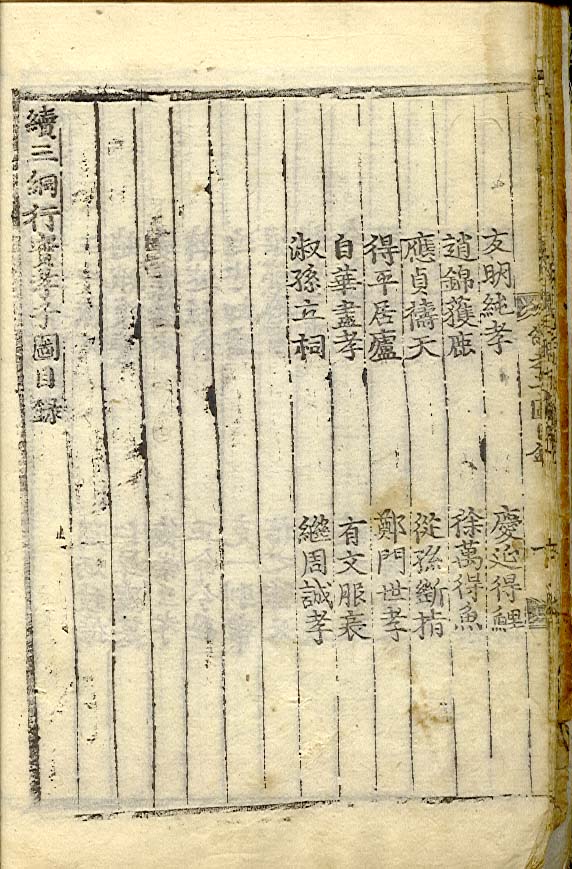 友明純孝 慶延得鯉
趙錦獲鹿 徐萬得魚
應貞禱天 從孫斷指
得平居廬 鄭門世孝
自華盡孝 有文服衰
淑孫立祠 繼周誠孝
續三綱行實孝子圖目錄